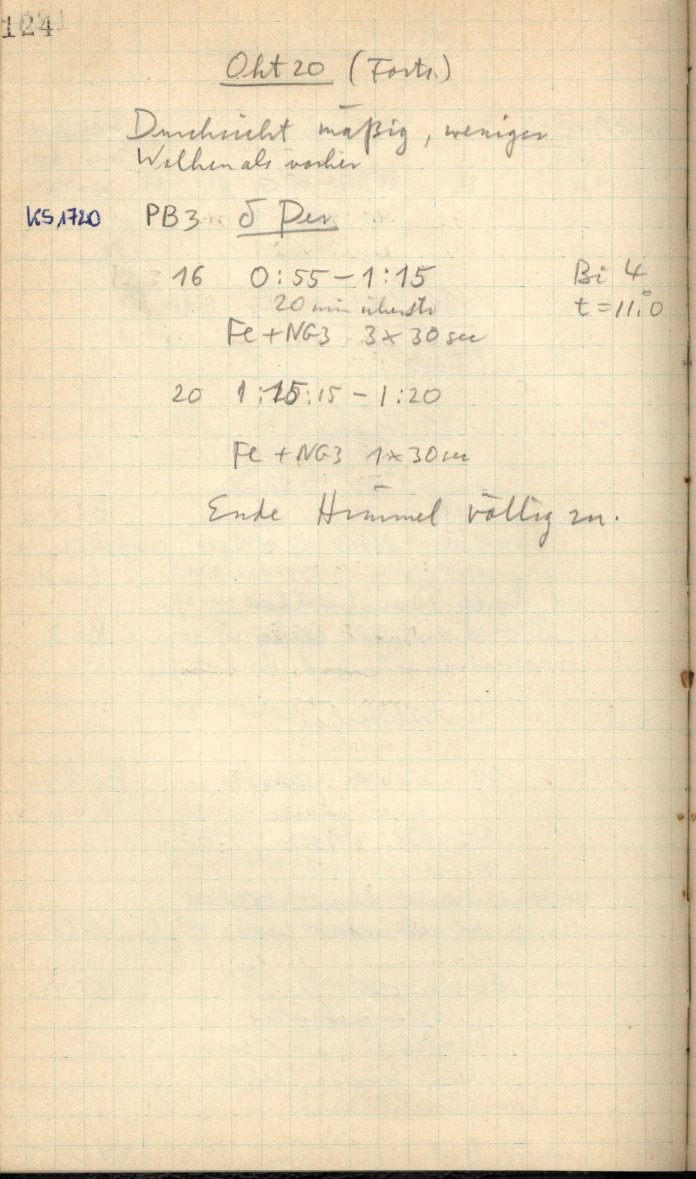 124
Okt 20 (Forts.)
Durchsicht mäßig, weniger
Wolken als vorher
KS 1720 PB3 δ Per
16 0:55 – 1:15 Bi 4
20 min überstr t = 11.°0
Fe + NG3 3 × 30 sec
20 1:15:15 – 1:20
Fe + NG3 1 × 30 sec
Ende Himmel völlig zu.